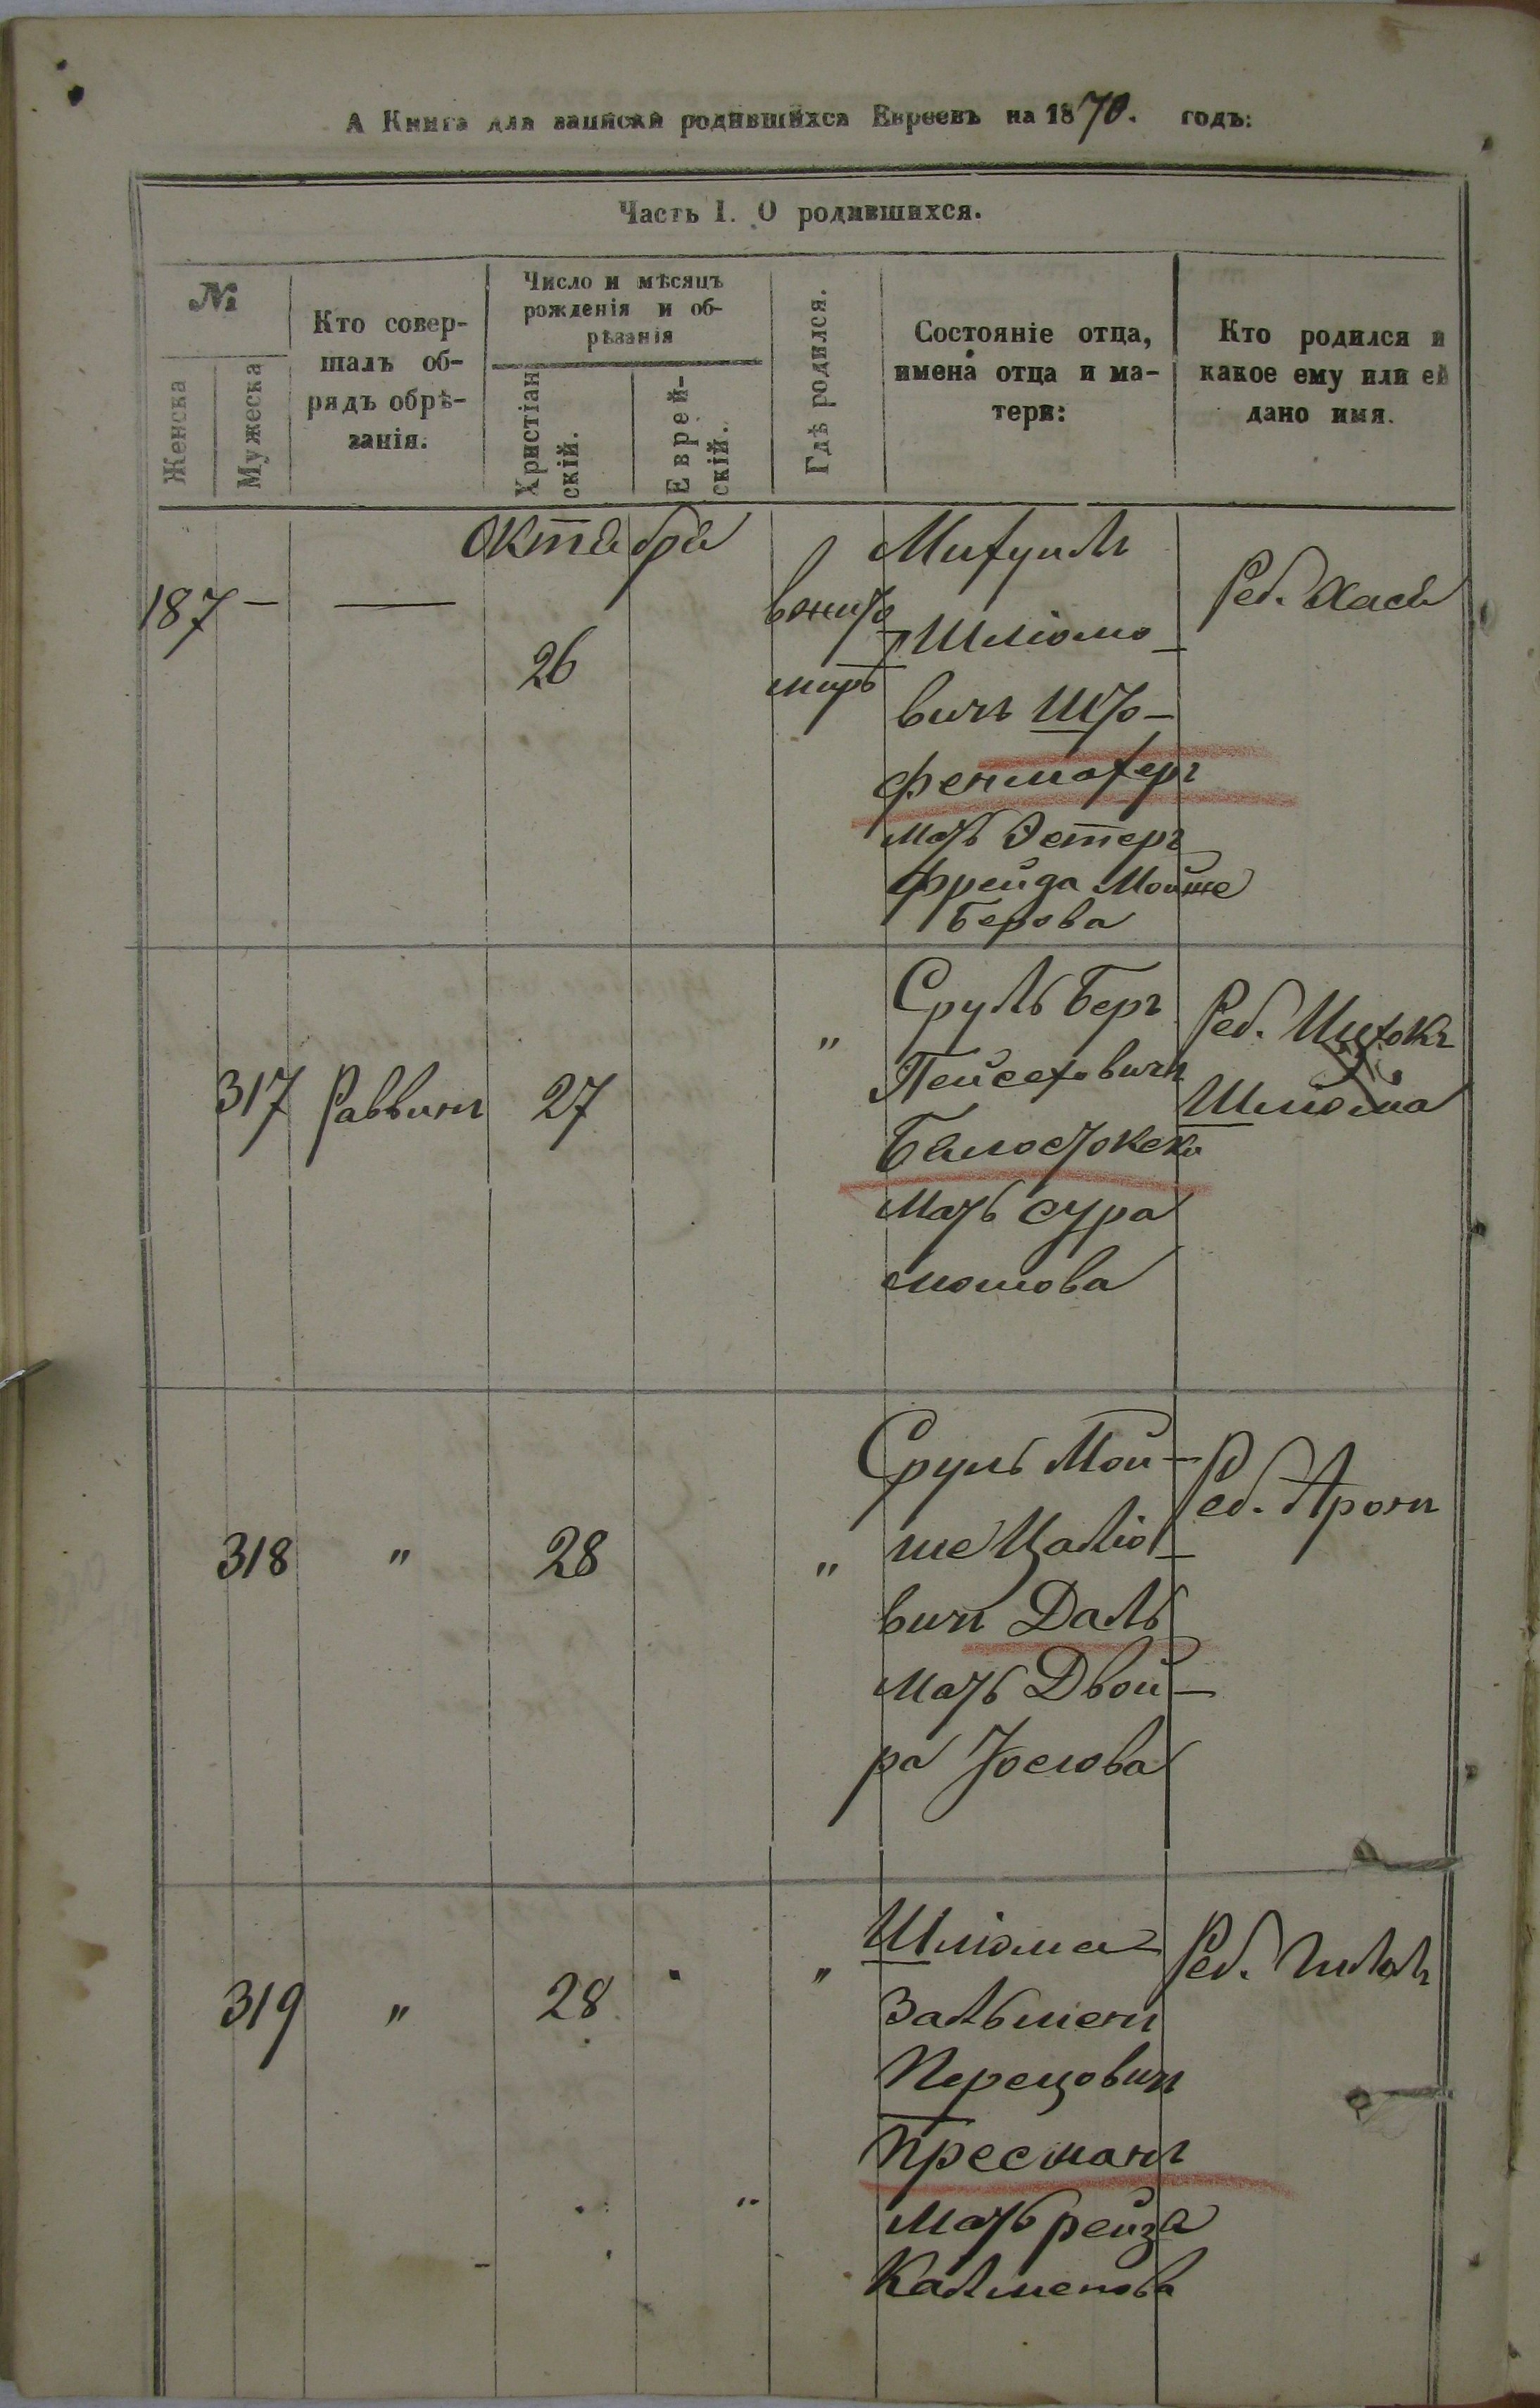 А Книга для записки родившихся Евреевъ на 1870. годъ:
Часть I. О родившихся.
№
Женска
Мужеска
Кто совер-
шалъ об-
рядъ обрѣ-
занія.
Число и мѣсяцъ
рожденія и об-
рѣзанія
Христіан
скій.
Еврей-
скій.
Гдѣ родился.
Состояніе отца,
имена отца и ма-
тери:
Кто родился и
какое ему или ей
дано имя.
октября
187 — —
26
в жито
миръ
Михуиль
Шліомо-
вичъ Што-
фенмахеръ
мать Эстеръ
Фрейда Мойше
Берова
Реб. Хася
317 Раввинъ 27 "
Сруль Беръ
Пейсеховичъ
Белостокски
мать сура
мошова
Реб. Ицхокъ
Шліома
318 " 28 "
Сруль Мой-
ше Цаліо-
вичъ Даль
мать Двой-
ра Іослова
Реб. Аронъ
319 " 28 "
Шліома
Зальменъ
Перецовичъ
Пресманъ
мать рейза
Калменова
Реб.